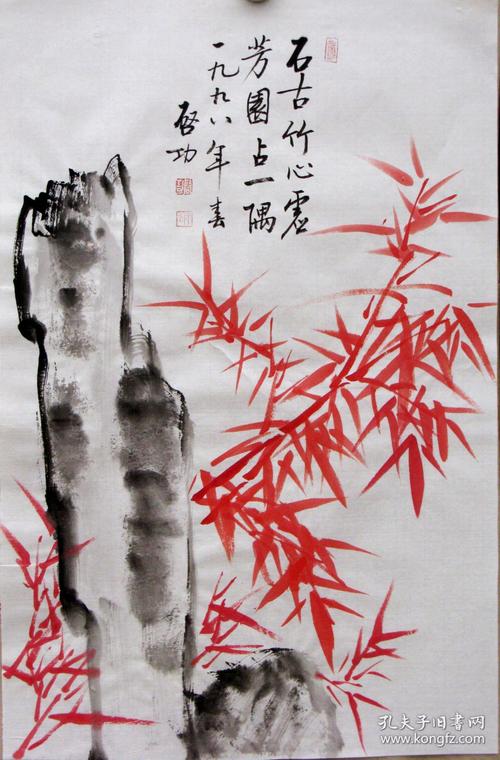 石古竹心虚
芳園占一隅
一九九八年春
啓功
孔夫子旧书网
www.kongfz.com